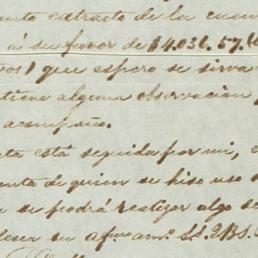 extracto de la cuen
á su favor de $4.036.57.
que espero se sirva
tiene alguna observacion
acompaño.
ta está seguida por mi, c
nta de quien se hiso uso
se podrá restejar algo s
su af.mo am.o S.S.